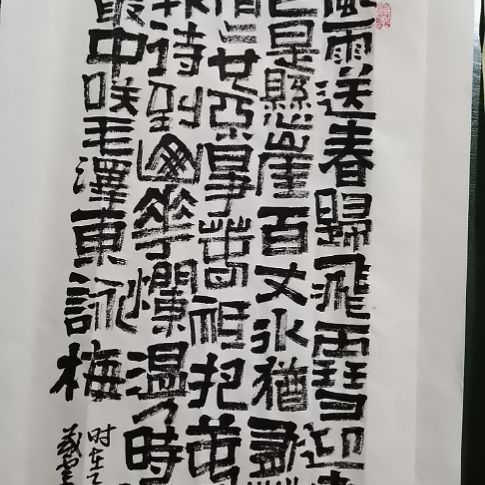 風雨送春歸飛雪迎春
已是懸崖百丈冰猶有
俏也不爭春祗把春
報待到山花爛漫時
叢中咲毛澤東詠梅
时在